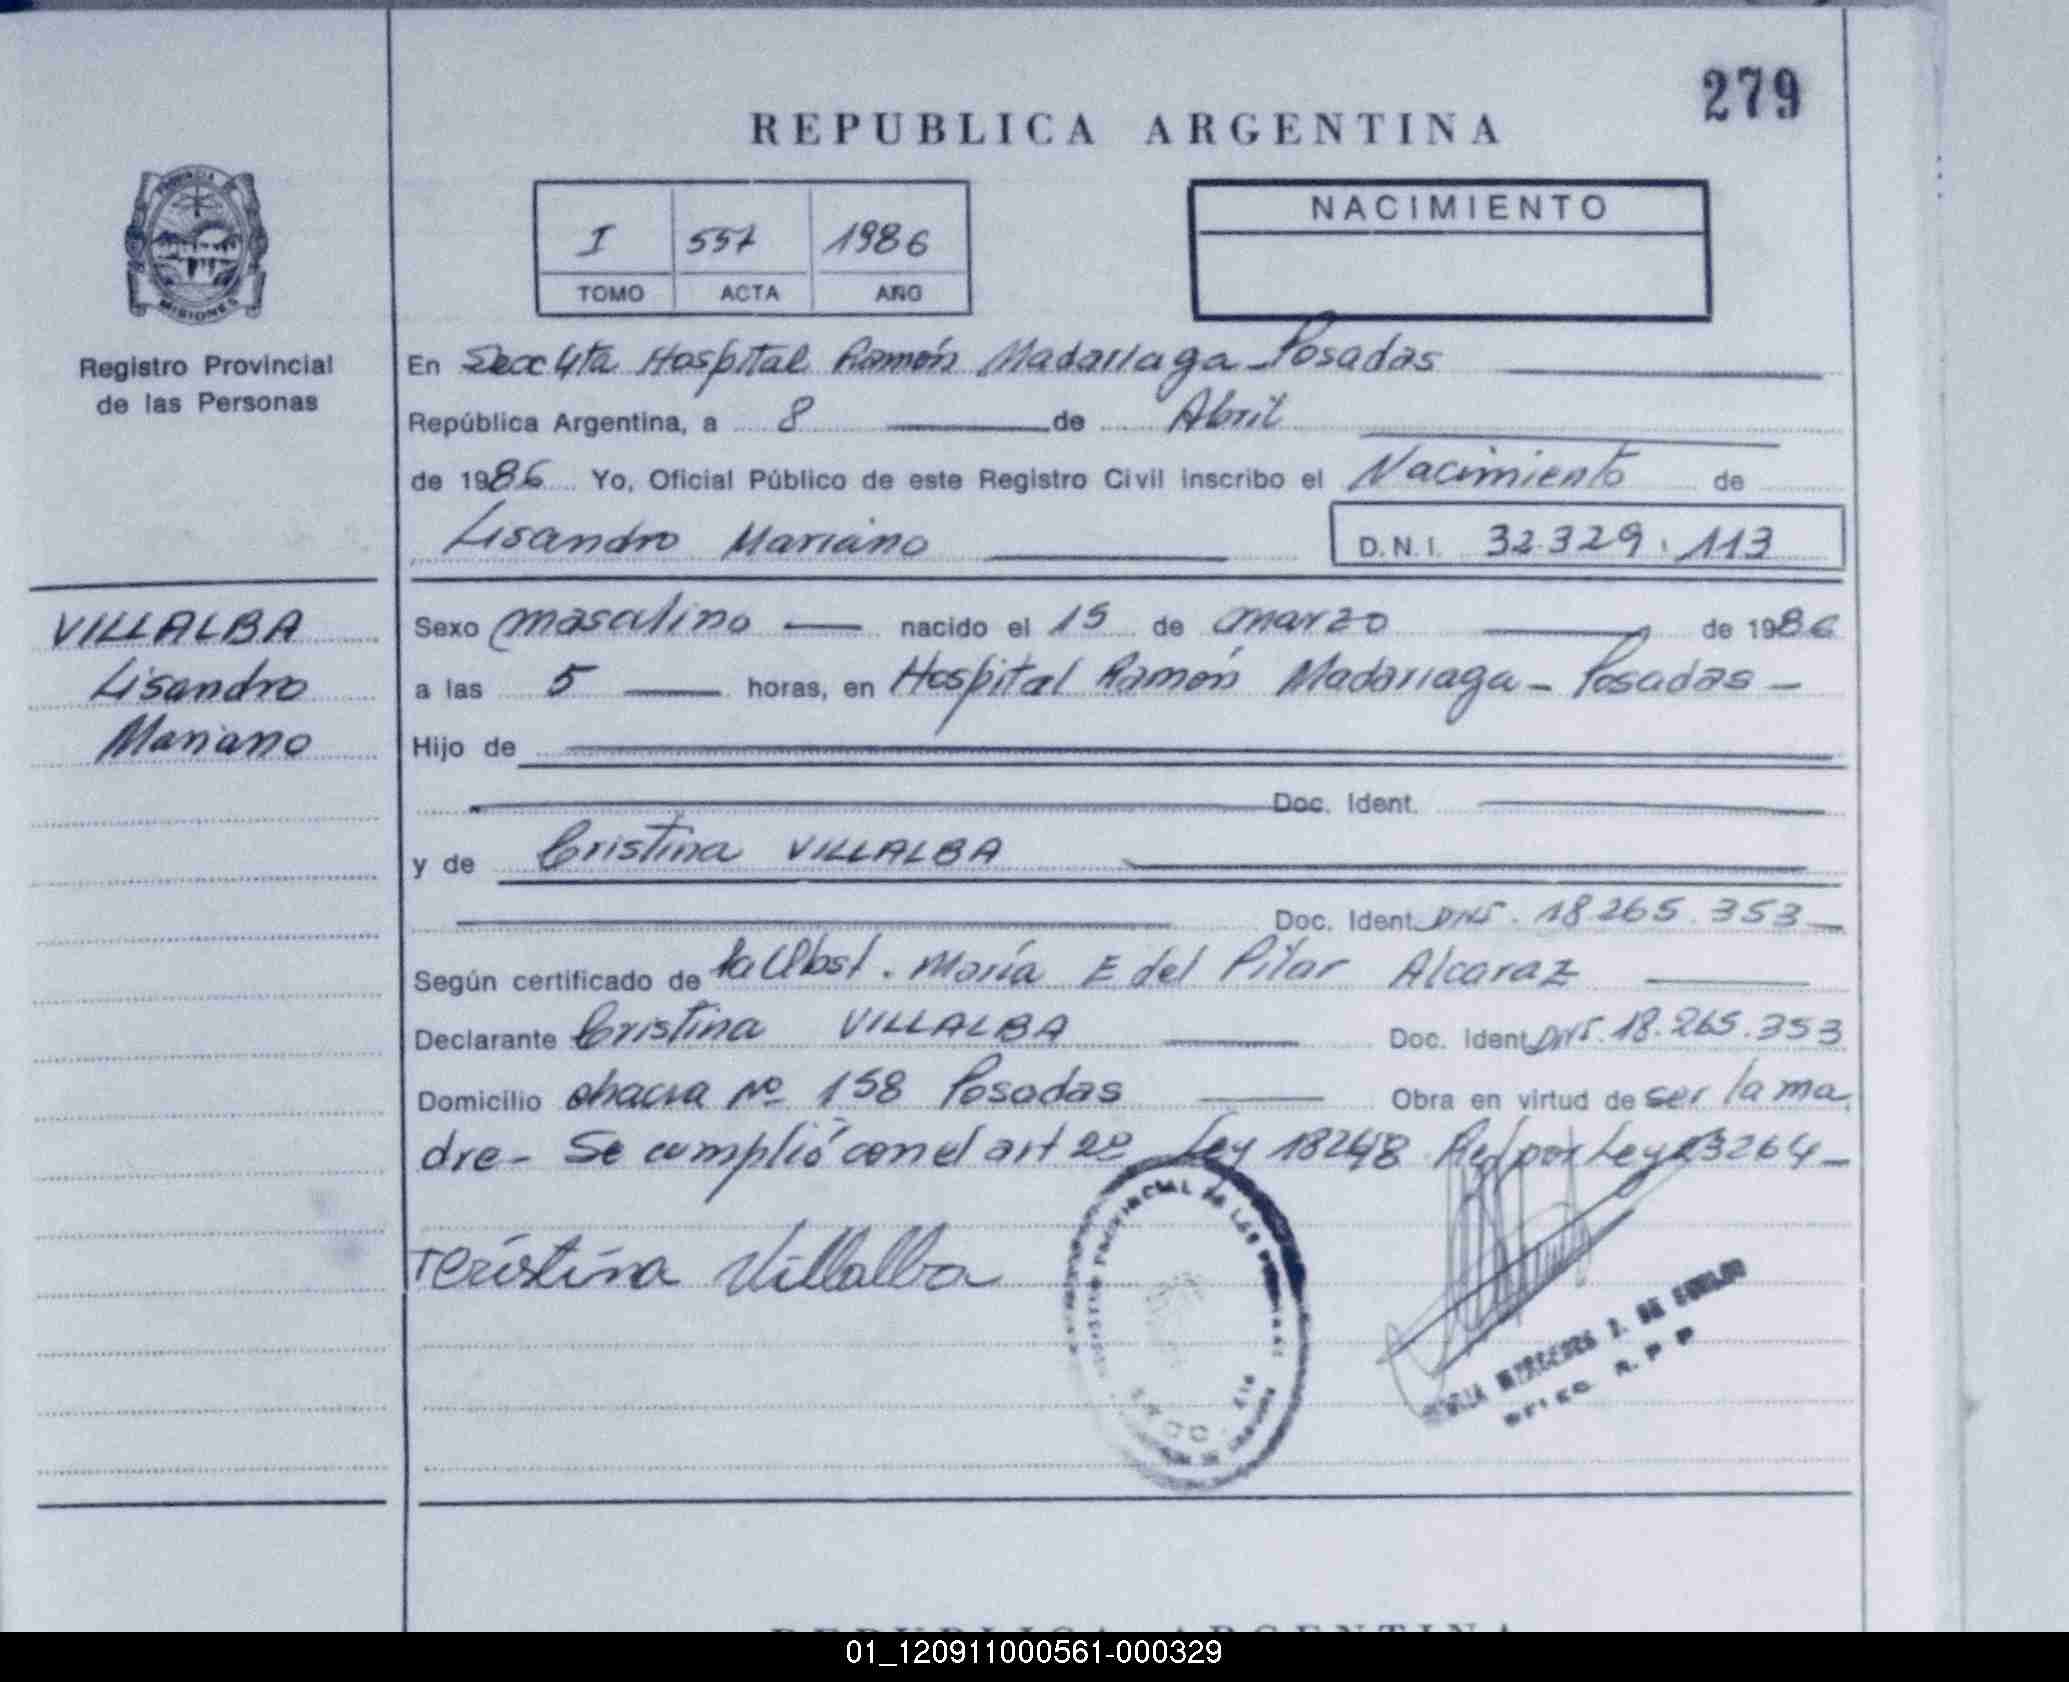 279
REPUBLICA ARGENTINA
I 557 1986
TOMO ACTA AÑO
NACIMIENTO
PROVINCIA DE
MISIONES
Registro Provincial
de las Personas
En Secc 4ta Hospital Ramón Madariaga - Posadas
República Argentina, a 8 de Abril
de 1986 Yo, Oficial Público de este Registro Civil inscribo el Nacimiento de
Lisandro Mariano D.N.I. 32.329.113
VILLALBA
Lisandro
Mariano
Sexo masculino nacido el 15 de marzo de 1986
a las 5 horas, en Hospital Ramón Madariaga - Posadas -
Hijo de
Doc. Ident.
y de Cristina VILLALBA
Doc. Ident. DNI. 18.265.353
Según certificado de la Obst. María E del Pilar Alcaraz
Declarante Cristina VILLALBA Doc. Ident. DNI. 18.265.353
Domicilio chacra Nº 158 Posadas Obra en virtud de ser la ma
dre - Se cumplió con el art 2º Ley 18248 por Ley 23264 -
Cristina Villalba
PROVINCIAL DE LAS
DE
R. P. P
REPUBLICA ARGENTINA
01_120911000561-000329